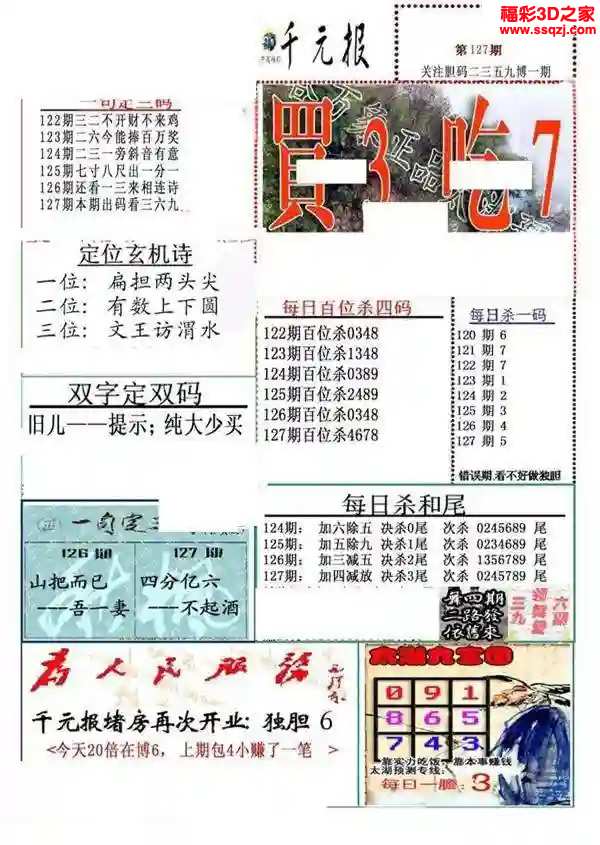 福彩3D之家
www.ssqzj.com
千元报
第127期
关注胆码二三五九博一期
一句定三码
122期三二不开财不来鸡
123期二六今能捧百万奖
124期二三一旁斜音有意
125期七寸八尺出一分一
126期还看一三来相连诗
127期本期出码看三六九
買3吃7
定位玄机诗
一位: 扁担两头尖
二位: 有数上下圆
三位: 文王访渭水
每日百位杀四码
122期百位杀0348
123期百位杀1348
124期百位杀0389
125期百位杀2489
126期百位杀0348
127期百位杀4678
每日杀一码
120 期 6
121 期 7
122 期 7
123 期 1
124 期 2
125 期 3
126 期 4
127 期 5
错误期,看不好做独胆
双字定双码
旧儿——提示; 纯大少买
一句定
126期
山把而已
---吾一妻
127期
四分亿六
---不起酒
每日杀和尾
124期: 加六除五 决杀0尾 次杀 0245689 尾
125期: 加五除九 决杀1尾 次杀 0234689 尾
126期: 加三减五 决杀4尾 次杀 1356789 尾
127期: 加四减放 决杀3尾 次杀 0245689 尾
为人民服务
千元报堵房再次开业: 独胆 6
<今天20倍在博6, 上期包4小赚了一笔 >
091
865
743
靠实力吃饭,靠本事赚钱
太湖预测专线:
每日一胆: 3